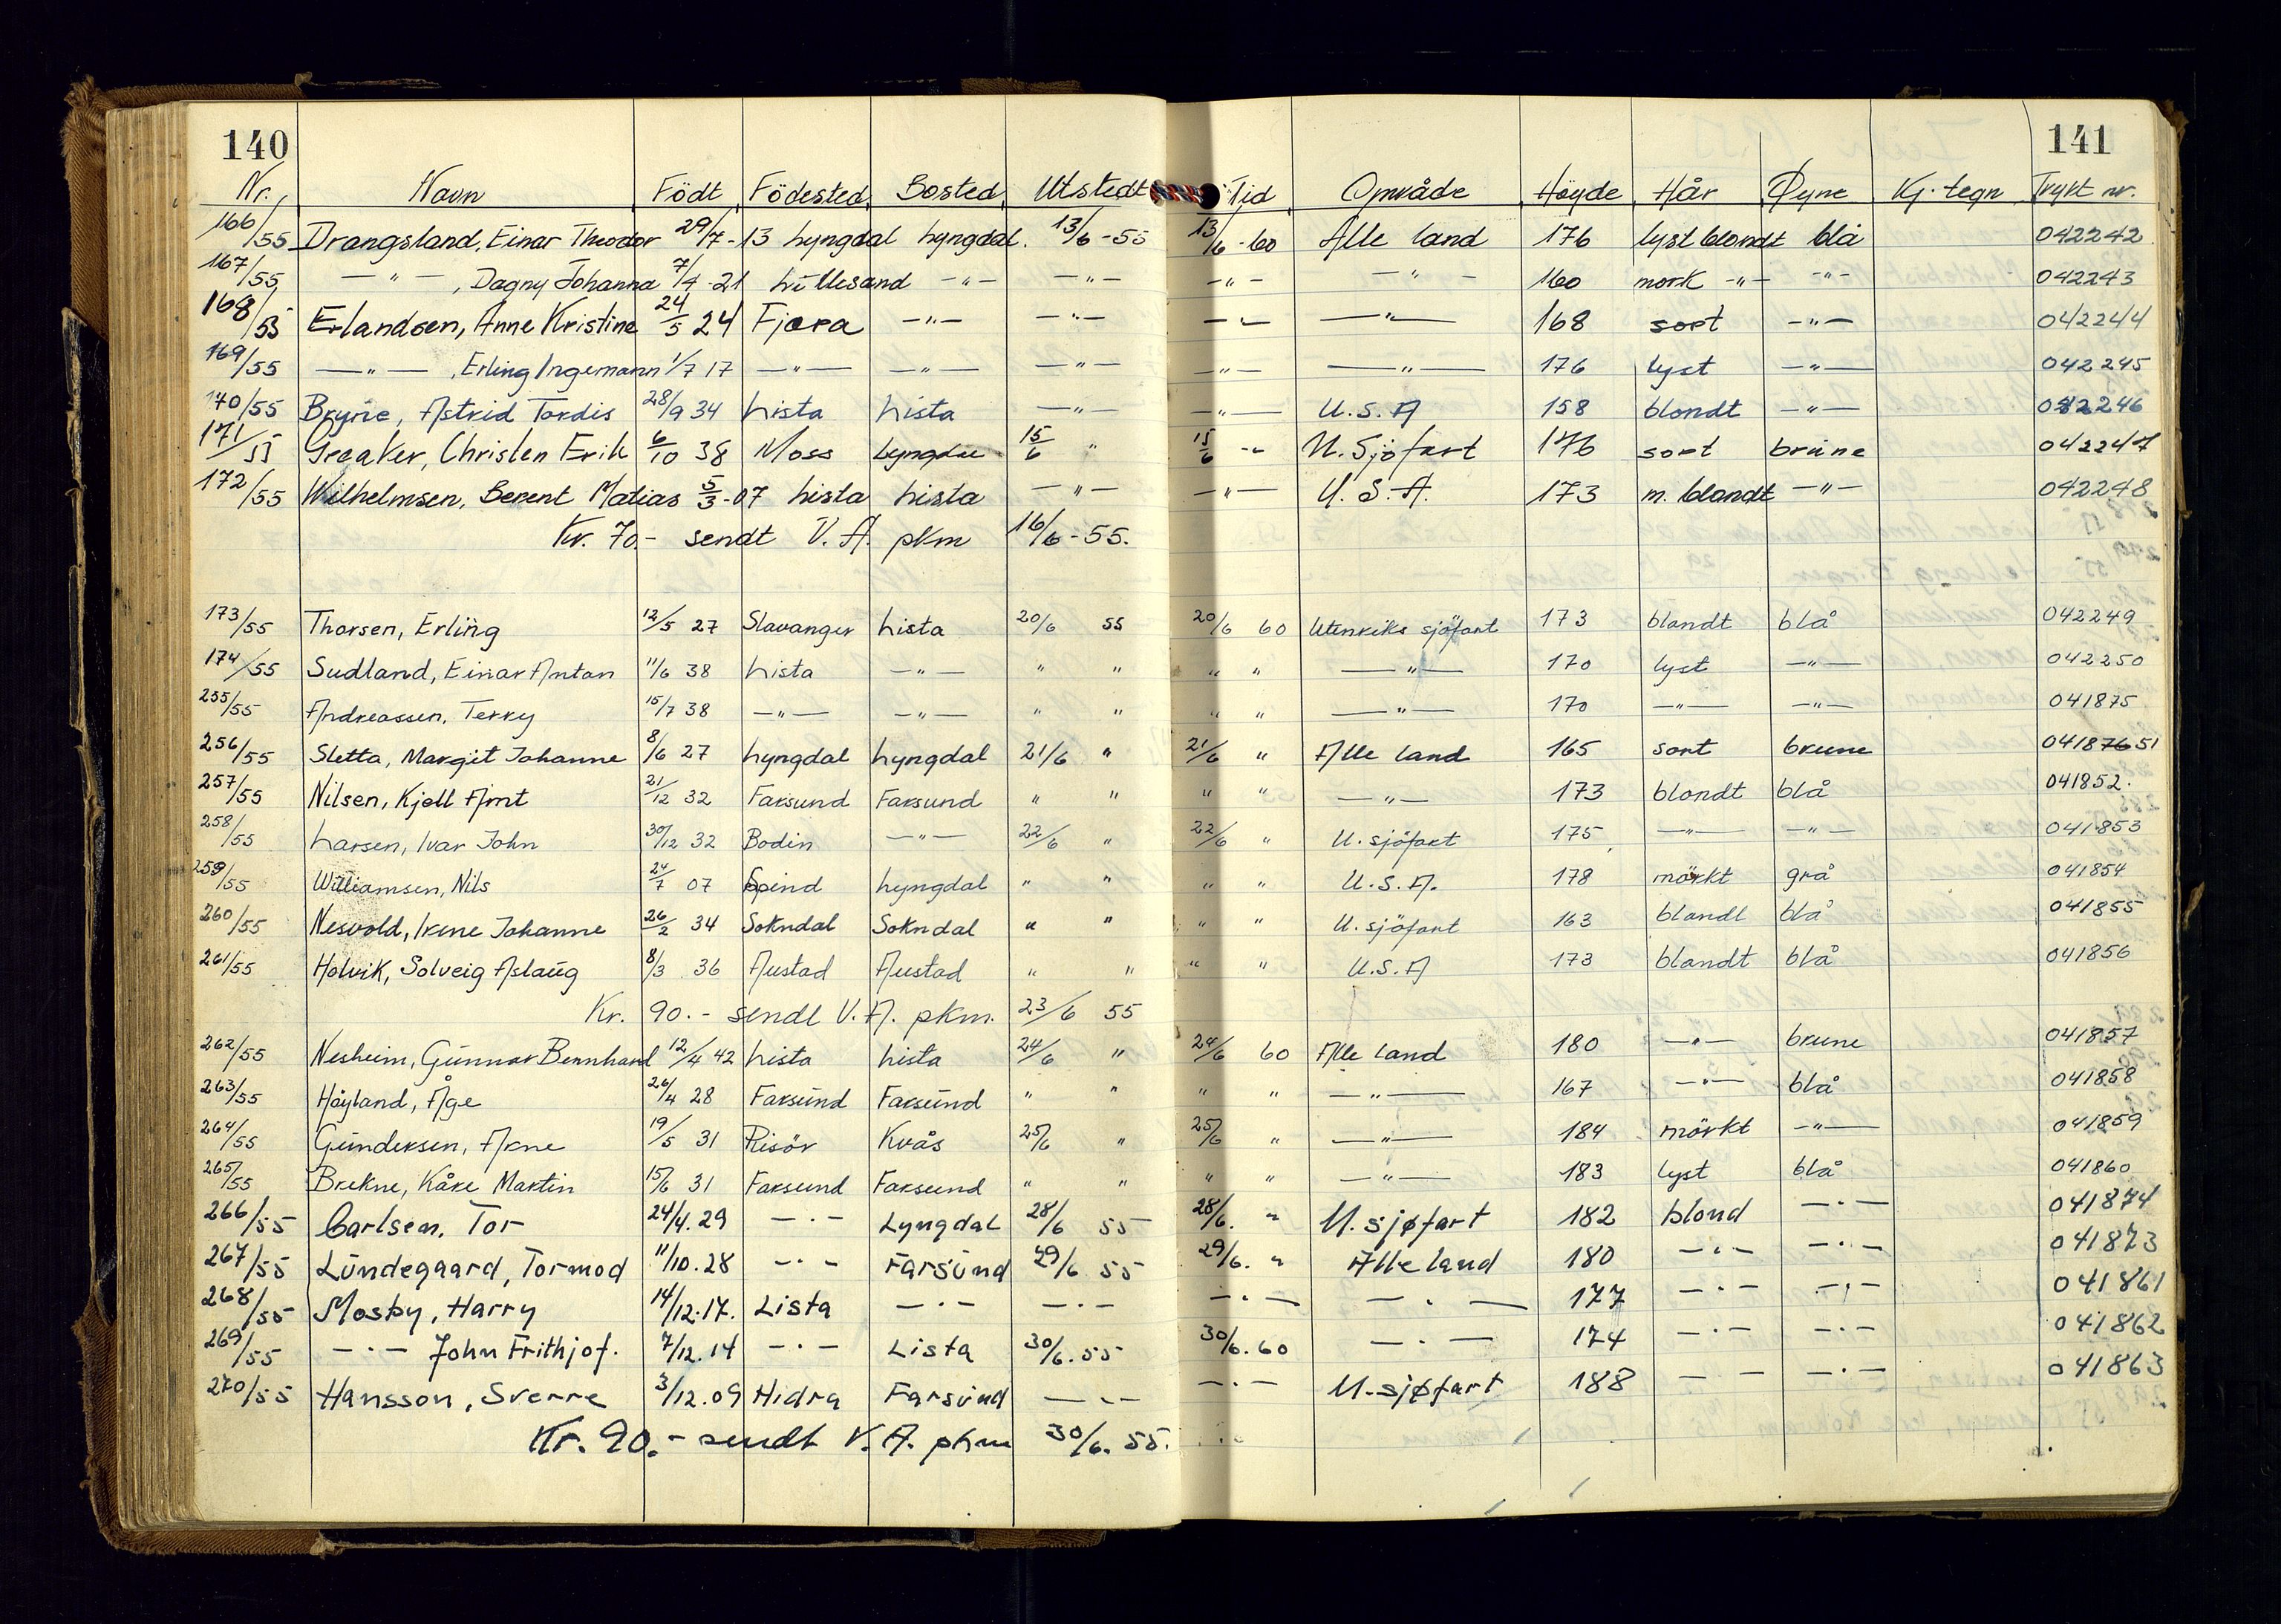 140 141
Nr. Navn Födt Födested Bosted Utstedt Tid Område Höyde Hår Øyne Kj. tegn Trykt nr.
166/55 Drangsland, Einar Theodor 29/7-13 Lyngdal Lyngdal. 13/6-55 13/6-60 Alle land 176 lyst blondt blå 042242
167/55 —"— , Dagny Johanna 7/4-21 Lillesand —"— —"— —"— —"— 160 mork —"— —"— 042243
168/55 Erlandsen, Anne Kristine 24/5 24 Fjæra —"— —"— —"— —"— 168 sort —"— 042244
169/55 —"— , Erling Ingemann 1/7 17 —"— —"— —"— —"— —"— 176 lyst —"— 042245
170/55 Bryne, Astrid Tordis 28/9 34 Lista Lista —"— —"— U.S.A 158 blondt —"— 042246
171/55 Greaker, Christen Erik 6/10 38 Moss Lyngdal 15/6 " 15/6 -"- U. Sjöfart 176 sort brune 042247
172/55 Wilhelmsen, Berent Matias 5/3-07 Lista Lista —"— —"— U.S.A. 173 m. blondt —"— 042248
Kr. 70.- sendt V.A. pkm 16/6-55.
173/55 Thorsen, Erling 12/5 27 Stavanger Lista 20/6 55 20/6 60 Utenriks sjöfart 173 blondt blå 042249
174/55 Sudland, Einar Anton 11/6 38 Lista —"— " " " " —"— 170 lyst —"— 042250
255/55 Andreassen, Terry 15/7 38 —"— —"— " " " " —"— 170 —"— —"— 041875
256/55 Sletta, Margit Johanne 8/6 27 Lyngdal Lyngdal 21/6 " 21/6 " Alle land 165 sort brune 04187651
257/55 Nilsen, Kjell Arnt 21/12 32 Farsund Farsund " " " " —"— 173 blondt blå 041852.
258/55 Larsen, Ivar John 30/12 32 Bodin —"— 22/6 " 22/6 " U. sjöfart 175 —"— —"— 041853
259/55 Williamsen, Nils 24/7 07 Spind Lyngdal " " " " U.S.A. 178 mörkt grå 041854
260/55 Nesvold, Irene Johanne 26/2 34 Sokndal Sokndal " " " " U. sjöfart 163 blondt blå 041855
261/55 Holvik, Solveig Aslaug 8/3 36 Austad Austad " " " " U.S.A 173 blandt blå 041856
Kr. 90.- sendt V.A. pkm. 23/6 55
262/55 Nesheim, Gunnar Bernhard 12/4 42 Lista Lista 24/6 " 24/6 60 Alle land 180 —"— brune 041857
263/55 Höyland, Åge 26/4 28 Farsund Farsund " " " " —"— 167 —"— blå 041858
264/55 Gundersen, Arne 19/5 31 Risör Kvås 25/6 " 25/6 " —"— 184 mörkt —"— 041859
265/55 Brekne, Kåre Martin 15/6 31 Farsund Farsund " " " " —"— 183 lyst blå 041860
266/55 Carlsen, Tor 24/4.29 —"— Lyngdal 28/6 55 28/6. " U. sjøfart 182 blond —"— 041874
267/55 Lundegaard, Tormod 11/10.28 —"— Farsund 29/6 55 29/6. " Alle land 180 —"— —"— 041873
268/55 Mosby, Harry 14/12.17. Lista —"— —"— —"— —"— 177 —"— —"— 041861
269/55 —"— John Frithjof. 7/12.14 —"— Lista 30/6.55 30/6.60 —"— 174 —"— —"— 041862
270/55 Hansson, Sverre 3/12.09 Hidra Farsund —"— —"— U. sjøfart 188 —"— —"— 041863
Kr. 90.- sendt V.A. pkm 30/6. 55.